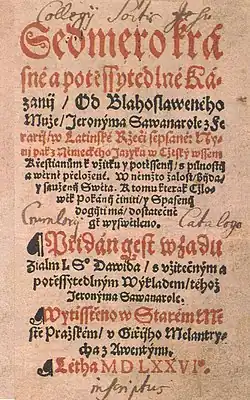 Collegij Soctis Jesu
Sedmero krá
sné a potěssytedlné Ká=
zanij / Od Blahoslaweného
Muže / Jeronýma Sawanarole z Fe
rarij / w Latinské Ržeči sepsané: Ny
nij pak z Německého Jazyku w Cžesky wssem
Křestianům k vžitku y potěssenij / s pilnostij
a wěrně přeložené. W němžto žalost / bijda /
y sauženij Swěta. K tomu kterak Cžlo=
wěk Pokánij činiti / y Spasenij
dogijti má / dostatečně
gt wyswětleno.
Catalogo
Přidán gest w zadu
Žialm LS° Dawida / s vžitečným a
potěssytedlným Wýkladem / téhož
Jeronýma Sawanarole.
Wytisstěno w Starém Mě
stě Pražském / v Giřijho Melantry=
cha z Awentýnu.
Létha MDLXXVI°.
inscriptus